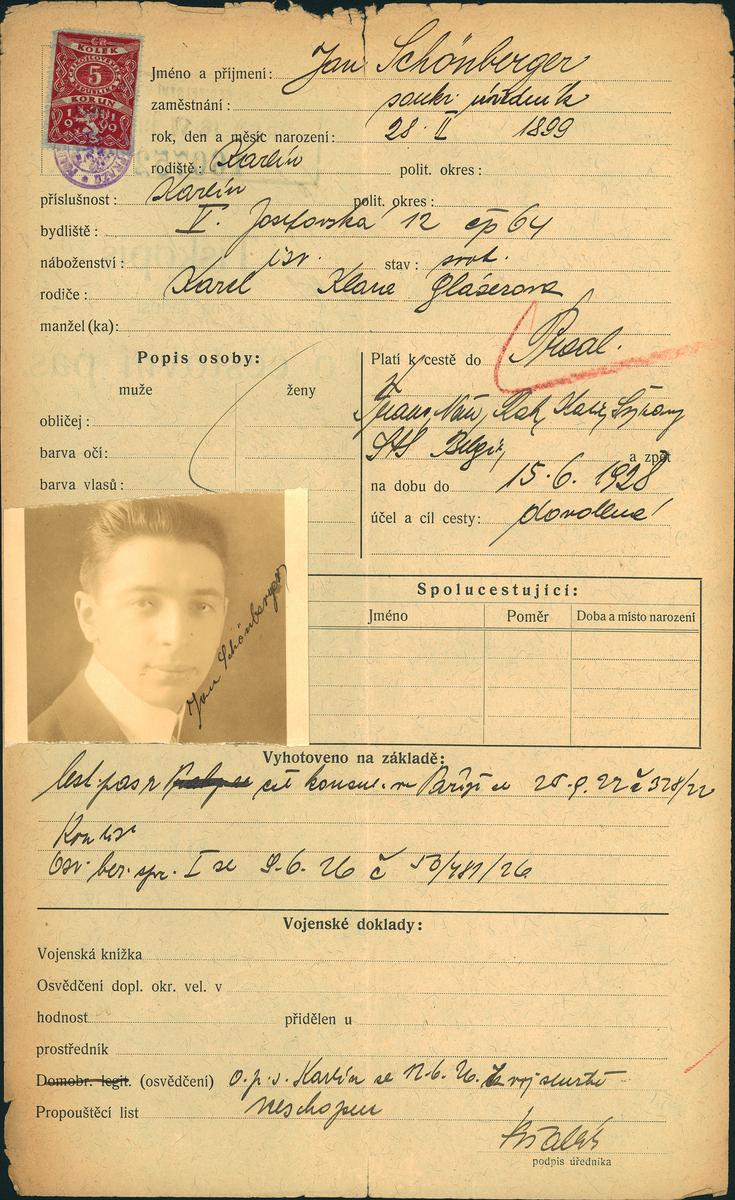 KOLEK
5
KORUN
1919
Jméno a příjmení: Jan Schönberger
zaměstnání: soukr. úředník
rok, den a měsíc narození: 28. II 1899
rodiště: Karlín polit. okres:
příslušnost: Karlín polit. okres:
bydliště: V. Josefovská 12 čp 64
náboženství: isr. stav: svob.
rodiče: Karel Klara Glaserova
manžel (ka):
Popis osoby:
Platí k cestě do
muže ženy
obličej: Franc, Něm, Rak,
barva očí: SHS Belgie, a zpět
barva vlasů:
na dobu do 15.6. 1928
účel a cíl cesty: dovolená
Jan Schönberger
Spolucestující:
Jméno Poměr Doba a místo narození
Vyhotoveno na základě:
cest. pas z konsul. v Paříži ze 9. 22 č 328/22
Osv. ber. spr. I ze 9.6. 26 č 53/481/26
Vojenské doklady:
Vojenská knížka
Osvědčení dopl. okr. vel. v
hodnost přidělen u
prostředník
Domobr. legit. (osvědčení) o.p.s. Karlín ze 12.6. 26. k voj službě
Propouštěcí list neschopen
podpis úředníka